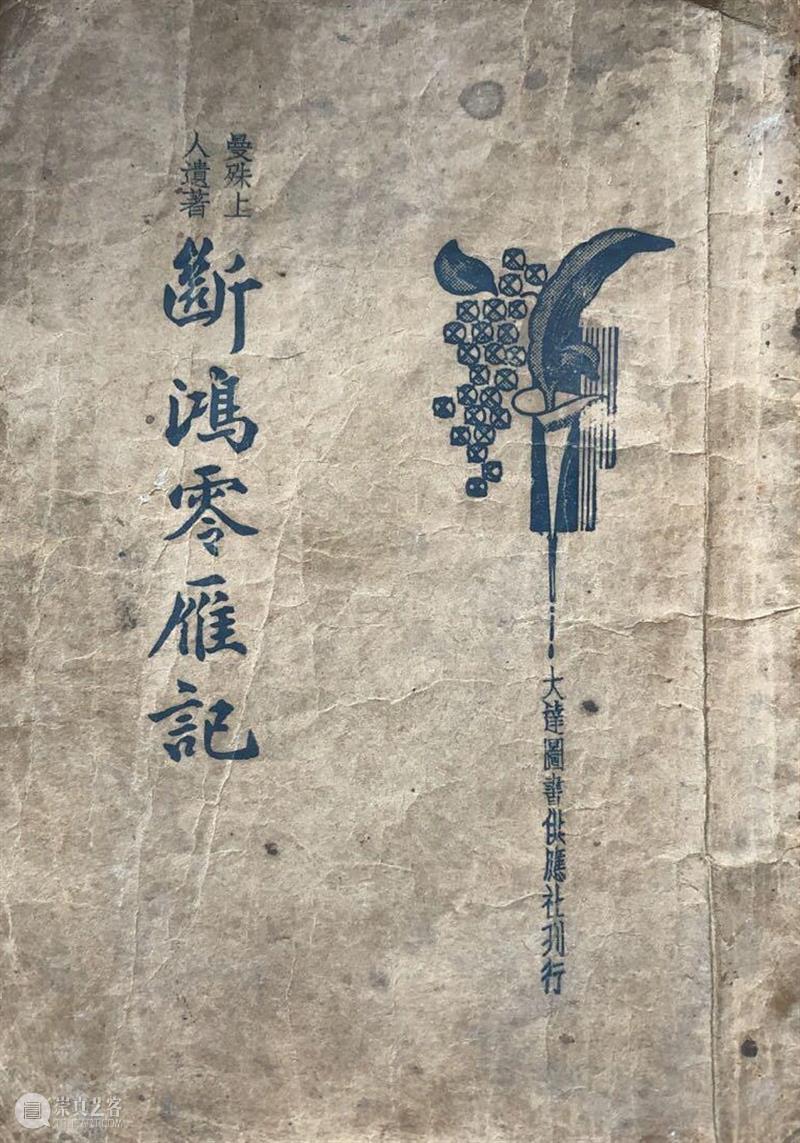 曼殊上
人遺著
斷鴻零雁記
大達圖書供應社刊行
崇真艺客